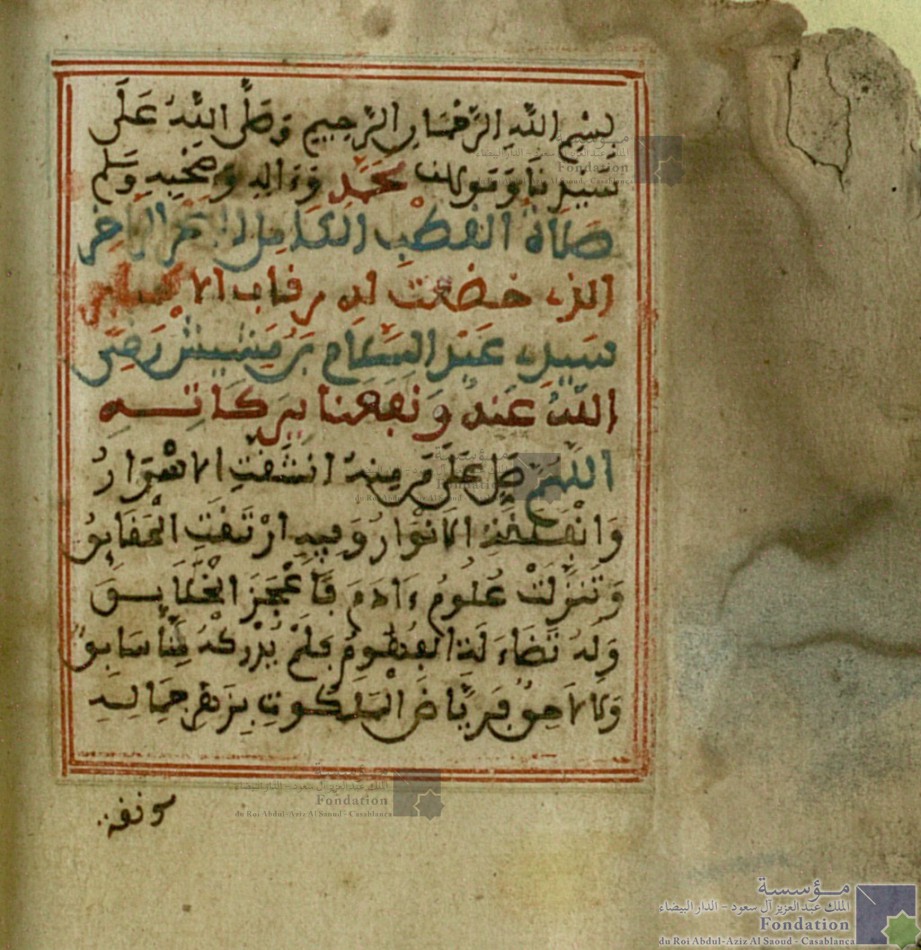 بِسْمِ اللَّهِ الرَّحْمَٰنِ الرَّحِيمِ وَصَلَّى اللَّهُ عَلَى
سَيِّدِنَا وَمَوْلَانَا مُحَمَّدٍ وَءَالِهِ وَصَحْبِهِ وَسَلَّمَ
صَلَاةُ الْقُطْبِ الْكَامِلِ
الذي خضعت له رقاب
سَيِّدِي عَبْدِ السَّلَامِ بْنِ مَشِيشْ رَضِيَ
اللَّهُ عَنْهُ وَنَفَعَنَا بِبَرَكَاتِهِ
اللَّهُمَّ صَلِّ عَلَى مَن مِنْهُ انْشَقَّتِ الْأَسْرَارُ
وَانْفَلَقَتِ الْأَنْوَارُ وَفِيهِ ارْتَقَتِ الْحَقَايِقُ
وَتَنَزَّلَتْ عُلُومُ ءَادَمَ فَأَعْجَزَ الْخَلَايِقَ
وَلَهُ تَضَاءَلَتِ الْفُهُومُ فَلَمْ يُدْرِكْهُ مِنَّا سَابِقٌ
وَلَا لَاحِقٌ فَرِيَاضُ الْمَلَكُوتِ بِزَهْرِ جَمَالِهِ
مونقة
مؤسسة
الملك عبد العزيز آل سعود - الدار البيضاء
Fondation
du Roi Abdul-Aziz Al Saoud - Casablanca